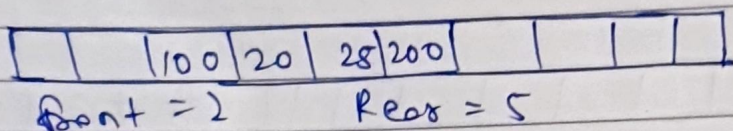 100 20 28 200
front = 2 Rear = 5